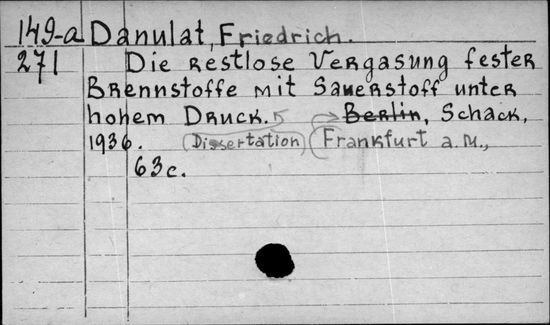 149-a Danulat, Friedrich.
271 Die restlose Vergasung fester
Brennstoffe mit Sauerstoff unter
hohem Druck. Berlin, Schack,
1936. (Dissertation) Frankfurt a. M.,
63c.